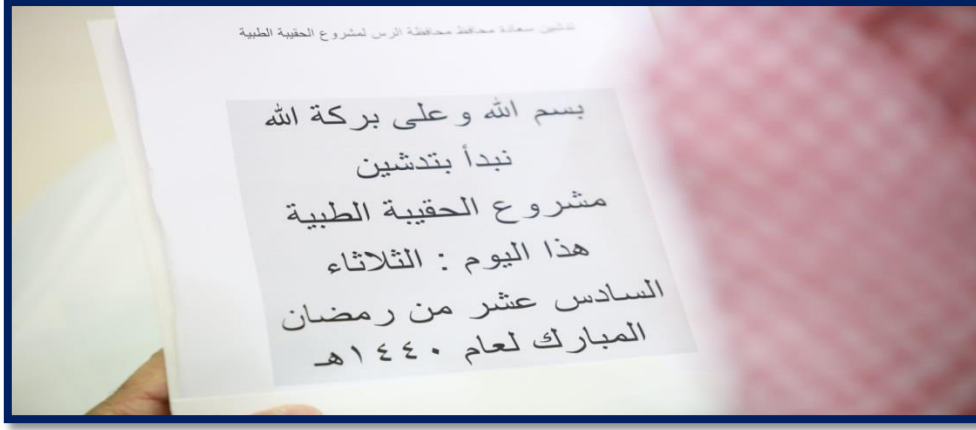 تدشين سعادة محافظ محافظة الرس لمشروع الحقيبة الطبية
بسم الله و على بركة الله
نبدأ بتدشين
مشروع الحقيبة الطبية
هذا اليوم : الثلاثاء
السادس عشر من رمضان
المبارك لعام ١٤٤٠هـ